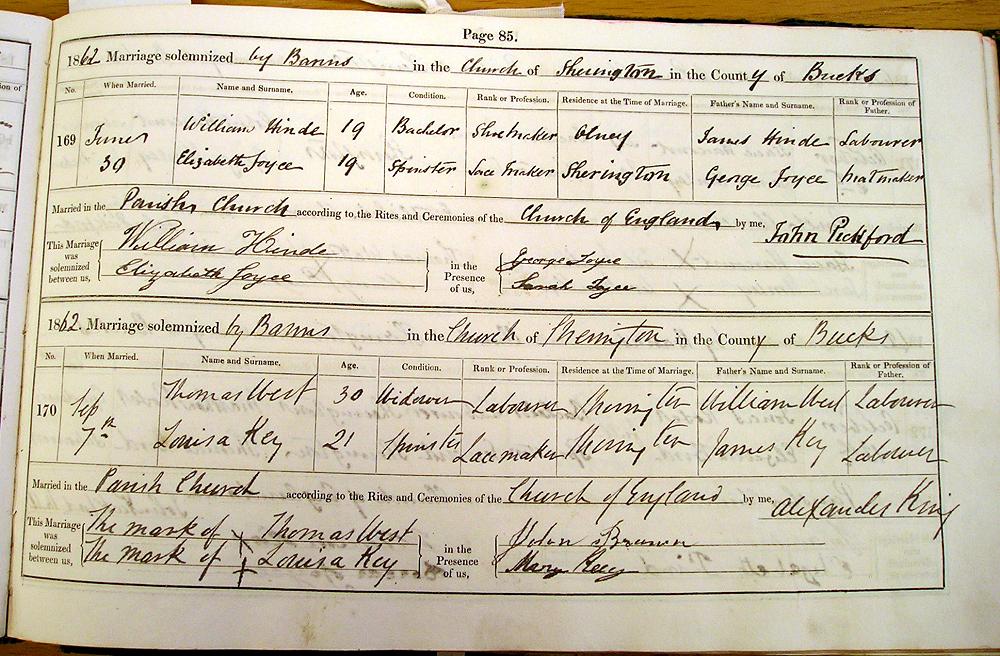 Page 85.
1862 Marriage solemnized by Banns in the Church of Sherington in the County of Bucks
No. When Married. Name and Surname. Age. Condition. Rank or Profession. Residence at the Time of Marriage. Father's Name and Surname. Rank or Profession of Father.
169 June William Hinde 19 Bachelor Shoe Maker Olney James Hinde Labourer
30 Elizabeth Joyce 19 Spinster Lace Maker Sherington George Joyce Matmaker
Married in the Parish Church according to the Rites and Ceremonies of the Church of England, by me, John Pickford
This Marriage was solemnized between us, William Hinde in the Presence of us, George Joyce
Elizabeth Joyce Sarah Joyce
1862. Marriage solemnized by Banns in the Church of Sherington in the County of Bucks
No. When Married. Name and Surname. Age. Condition. Rank or Profession. Residence at the Time of Marriage. Father's Name and Surname. Rank or Profession of Father.
170 Sep Thomas West 30 Widower Labourer Sherington William West Labourer
7th Louisa Key 21 Spinster Lacemaker Sherington James Key Labourer
Married in the Parish Church according to the Rites and Ceremonies of the Church of England by me, Alexander King
This Marriage was solemnized between us, The mark of X Thomas West in the Presence of us, John Brown
The mark of X Louisa Key Mary Key